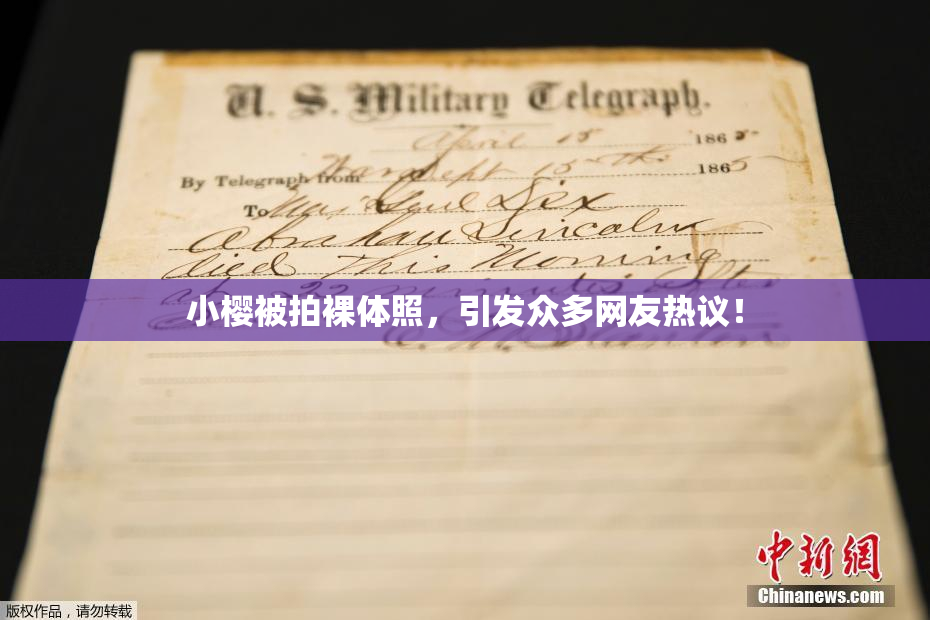 U. S. Military Telegraph.
April 15 1865
By Telegraph from War Dept 15th 1865
To Maj Genl Dix
Abraham Lincoln
died This Morning
at 22 minutes after
小樱被拍裸体照，引发众多网友热议！
E. M. Stanton
中新网
Chinanews.com
版权作品，请勿转载